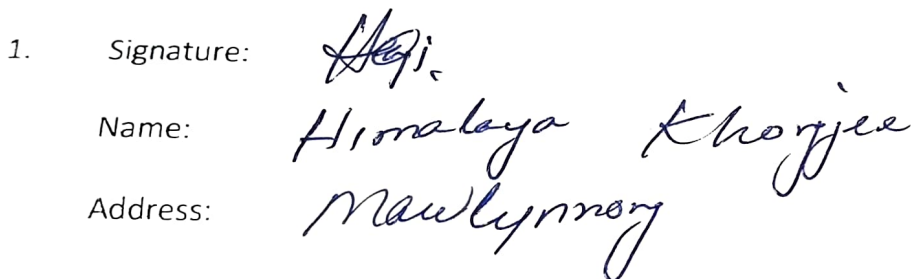 1. Signature:
Name: Himalaya Khongjee
Address: Mawlynnong